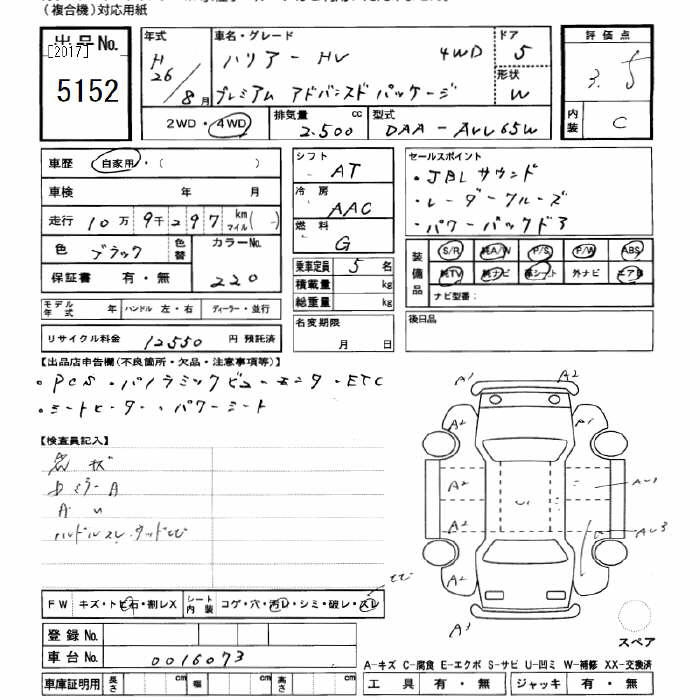 （複合機）対応用紙
出品No.
[2017]
5152
年式
H
26
8 月
車名・グレード
ハリアー HV 4WD
プレミアム アドバンスドパッケージ
ドア
5
形状
W
評価点
3.5
内装
C
2WD・4WD
排気量 cc
2.500
型式
DAA-AVU65W
車歴 自家用・( )
車検 年 月
走行 10万 9千 297 km マイル ( - )
色 ブラック 色替 カラーNo.
220
保証書 有・無
モデル年式 年 ハンドル 左・右 ディーラー・並行
リサイクル料金 12550 円 預託済
シフト
AT
冷房
AAC
燃料
G
乗車定員 5 名
積載量 kg
総重量 kg
名変期限
月 日
セールスポイント
・JBLサウンド
・レーダークルーズ
・パワーバックドア
装備品
S/R 純A/W P/S P/W ABS
純TV 純ナビ 革シート 外ナビ エア B
ナビ型番:
後日品
【出品店申告欄(不良箇所・欠品・注意事項等)】
・PCS・パノラミックビューモニター・ETC
・シートヒーター・パワーシート
【検査員記入】
ミラーA
ハンドルスレ・ウッド
FW キズ・トビ石・割レX シート内装 コゲ・穴・汚レ・シミ・破レ・スレ
登録No.
車台No. 0016073
車庫証明用 長さ 幅 高さ
A1 A2
A2 A1
A2 AU1
A2 AU3
A2
A1
スペア
A-キズ C-腐食 E-エクボ S-サビ U-凹ミ W-補修 XX-交換済
工具 有・無 ジャッキ 有・無